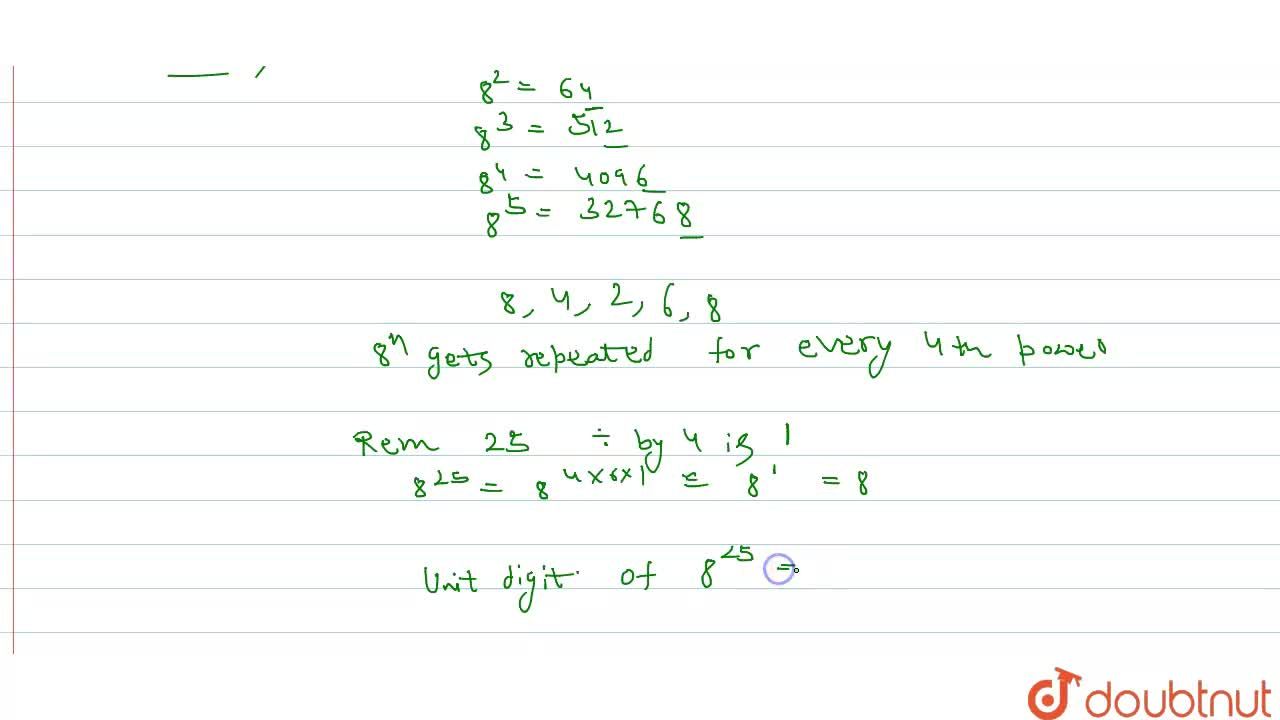 8² = 64
8³ = 512
8⁴ = 4096
8⁵ = 32768
8, 4, 2, 6, 8
8ⁿ gets repeated for every 4th power
Rem 25 ÷ by 4 is 1
8²⁵ = 8⁴ˣ⁶ˣ¹ = 8¹ = 8
Unit digit of 8²⁵ =
doubtnut